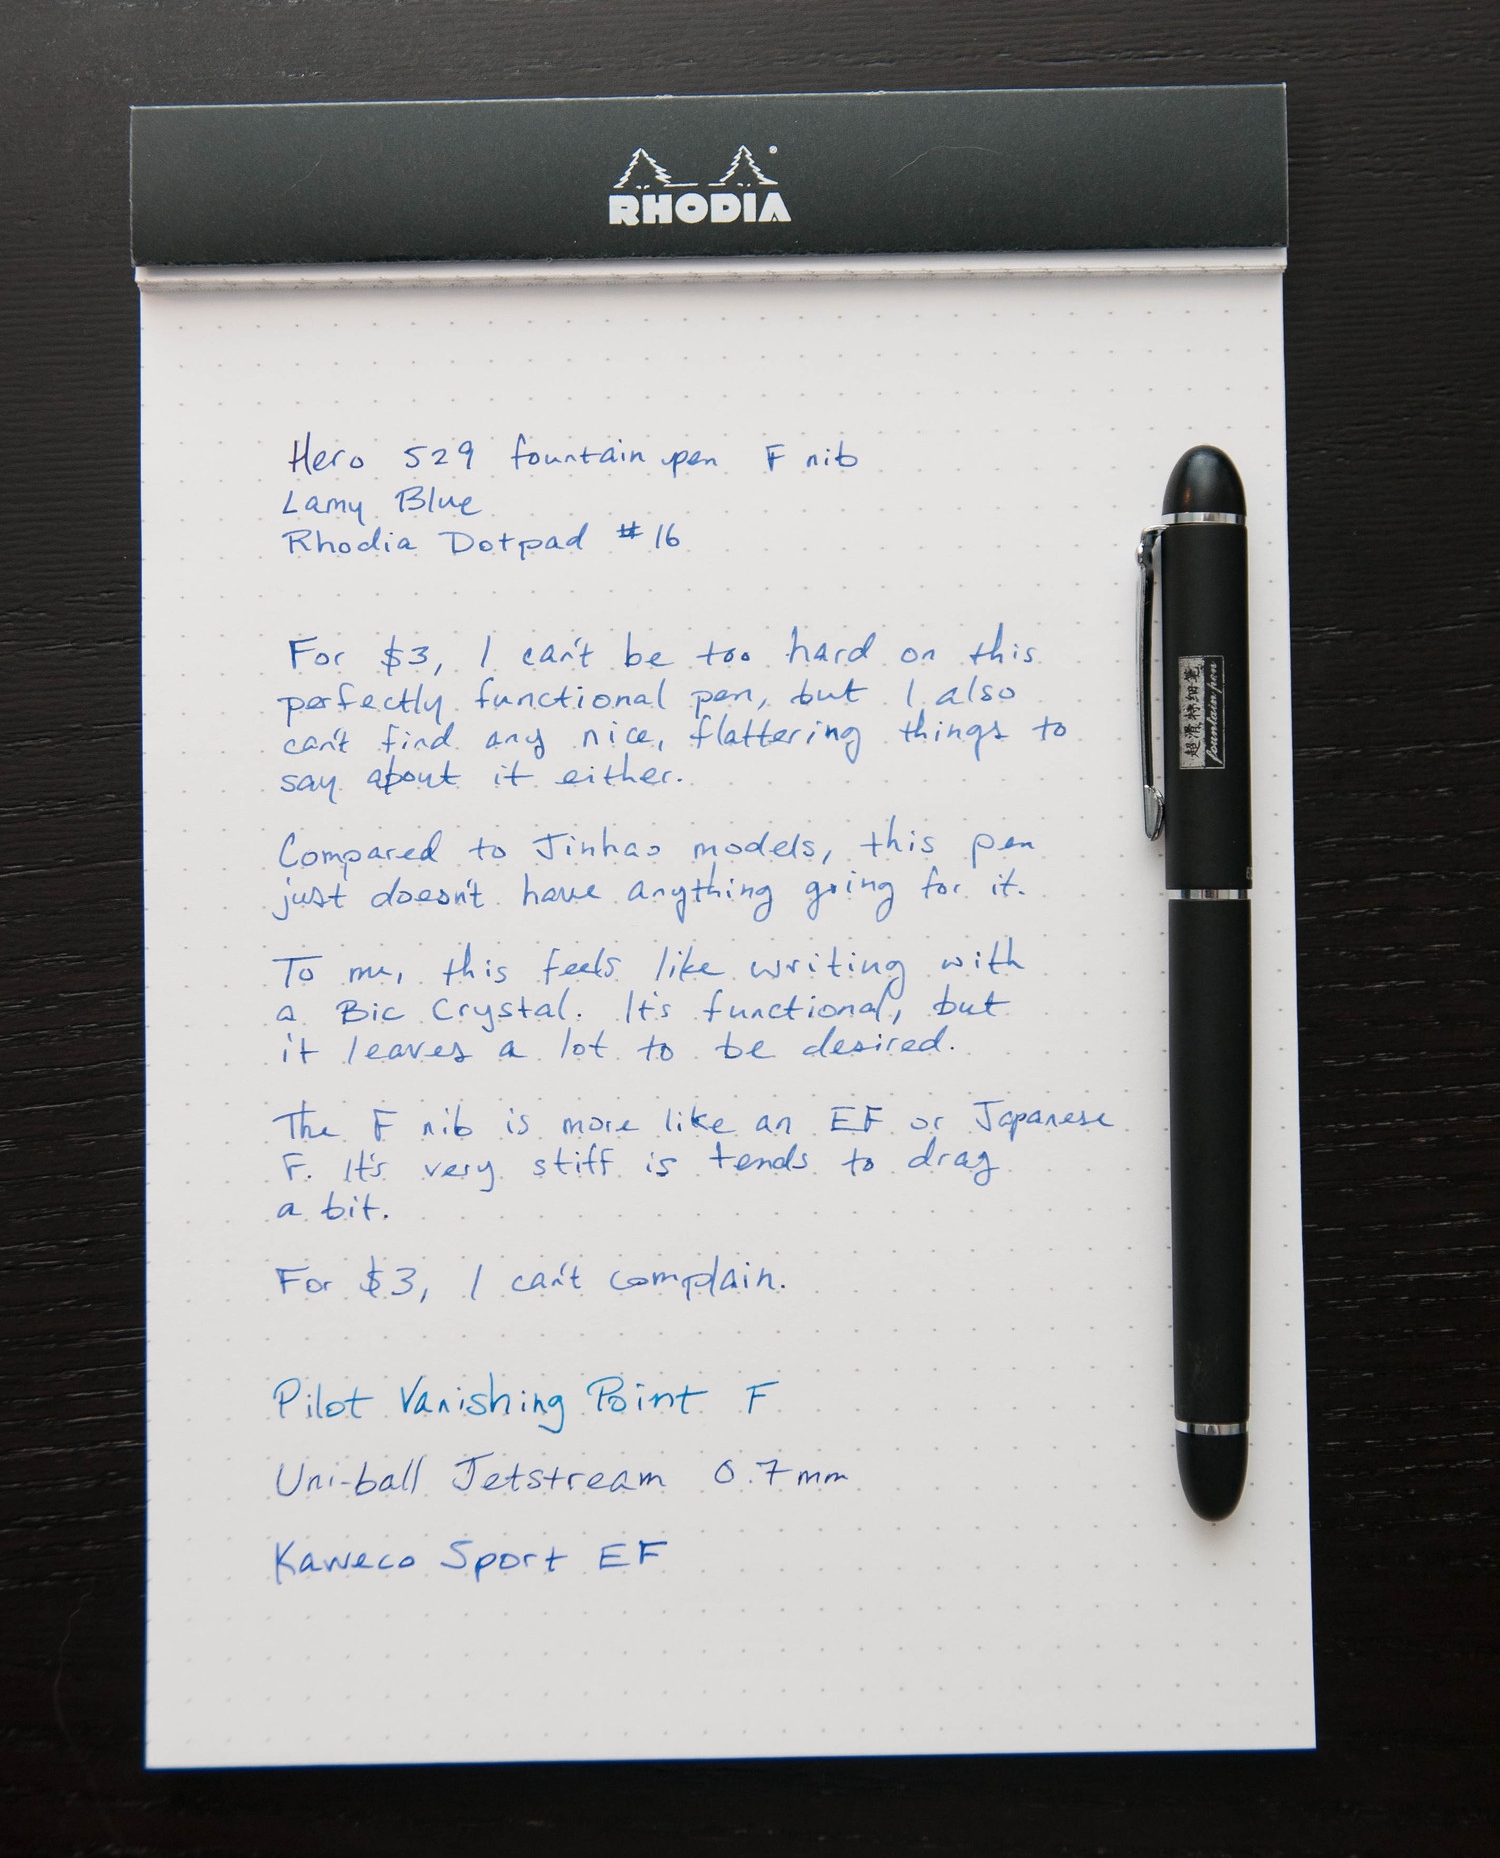 RHODIA
Hero 529 fountain pen F nib
Lamy Blue
Rhodia Dotpad #16
For $3, I can't be too hard on this
perfectly functional pen, but I also
can't find any nice, flattering things to
say about it either.
Compared to Jinhao models, this pen
just doesn't have anything going for it.
To me, this feels like writing with
a Bic Crystal. It's functional, but
it leaves a lot to be desired.
The F nib is more like an EF or Japanese
F. It's very stiff is tends to drag
a bit.
For $3, I can't complain.
Pilot Vanishing Point F
Uni-ball Jetstream 0.7mm
Kaweco Sport EF
超滑特细笔
fountain pen